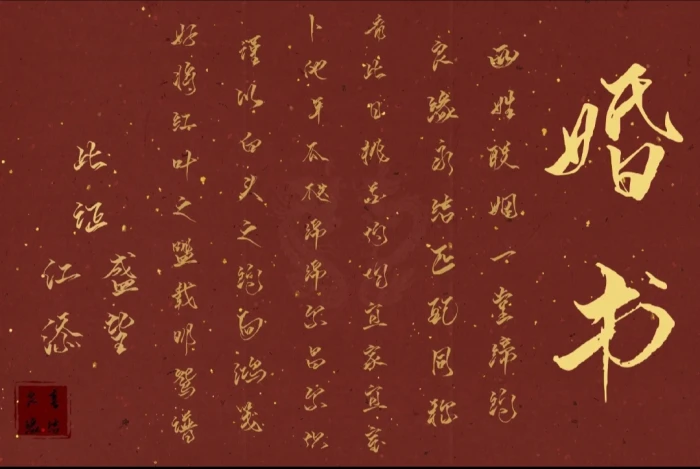 婚书
两姓联姻一堂缔约
良缘永结匹配同称
看此日桃花灼灼宜家宜室
卜他年瓜瓞绵绵尔昌尔炽
谨以白头之约向鸿笺
好将红叶之盟载明鸳谱
此证
盛望
江添